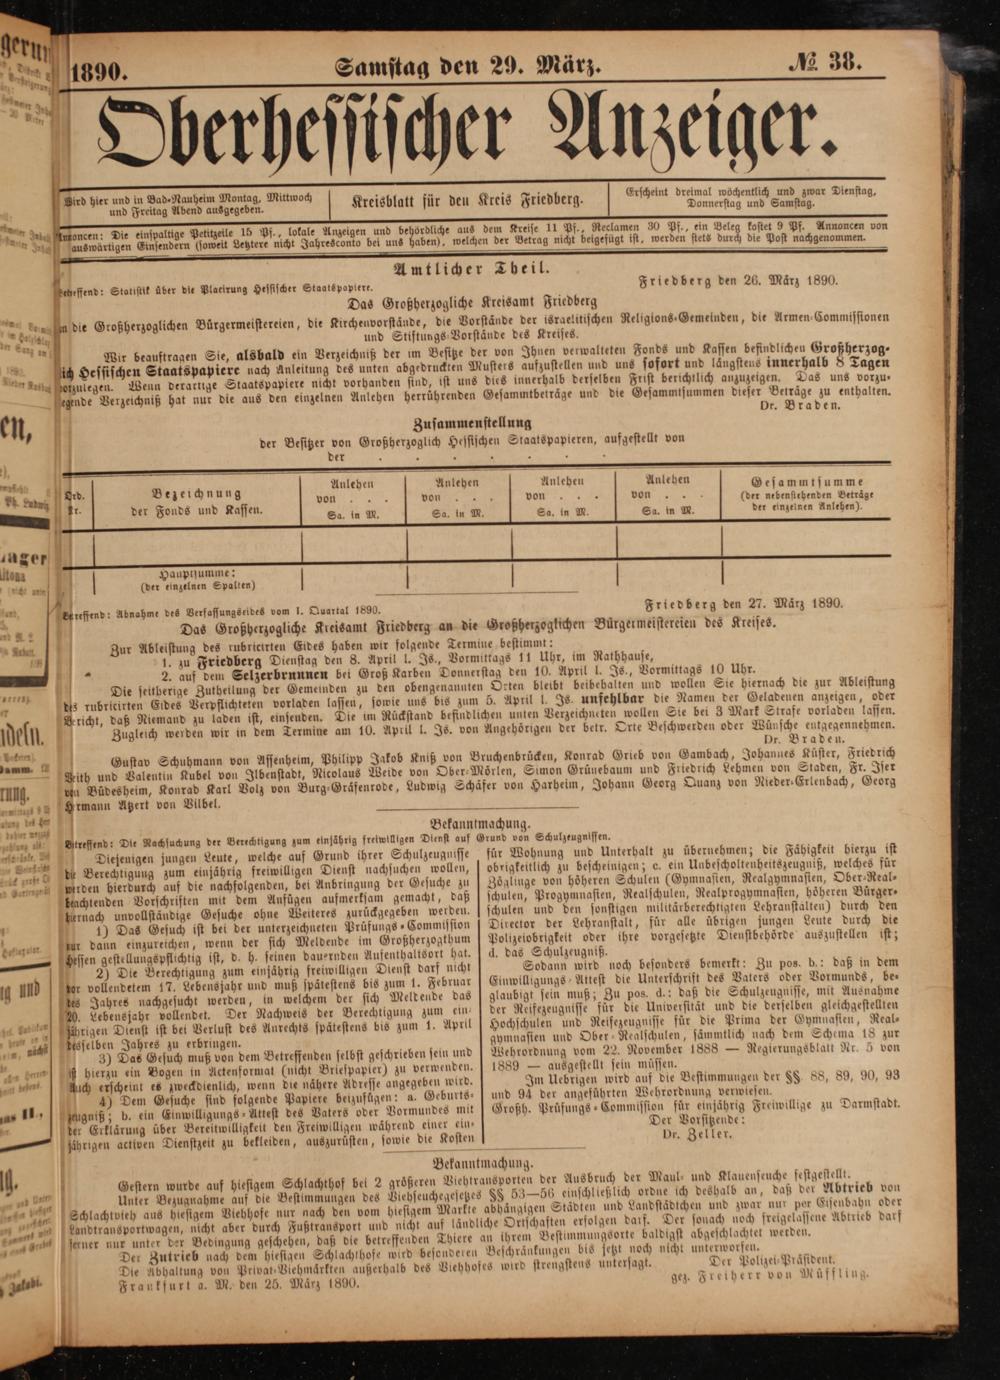 1890.
Samstag den 29. März.
№ 38.
Oberhessischer Anzeiger.
Wird hier und in Bad-Nauheim Montag, Mittwoch
und Freitag Abend ausgegeben.
Kreisblatt für den Kreis Friedberg.
Erscheint dreimal wöchentlich und zwar Dienstag,
Donnerstag und Samstag.
Annoncen: Die einspaltige Petitzeile 15 Pf., lokale Anzeigen und behördliche aus dem Kreise 11 Pf., Reclamen 30 Pf., ein Beleg kostet 9 Pf. Annoncen von
auswärtigen Einsendern (soweit Letztere nicht Jahresconto bei uns haben), welchen der Betrag nicht beigefügt ist, werden stets durch die Post nachgenommen.
Amtlicher Theil.
Betreffend: Statistik über die Placirung Hessischer Staatspapiere.
Friedberg den 26. März 1890.
Das Großherzogliche Kreisamt Friedberg
an die Großherzoglichen Bürgermeistereien, die Kirchenvorstände, die Vorstände der israelitischen Religions-Gemeinden, die Armen-Commissionen
und Stiftungs-Vorstände des Kreises.
Wir beauftragen Sie, alsbald ein Verzeichniß der im Besitze der von Ihnen verwalteten Fonds und Kassen befindlichen Großherzog-
lich Hessischen Staatspapiere nach Anleitung des unten abgedruckten Musters aufzustellen und uns sofort und längstens innerhalb 8 Tagen
vorzulegen. Wenn derartige Staatspapiere nicht vorhanden sind, ist uns dies innerhalb derselben Frist berichtlich anzuzeigen. Das uns vorzu-
legende Verzeichniß hat nur die aus den einzelnen Anlehen herrührenden Gesammtbeträge und die Gesammtsummen dieser Beträge zu enthalten.
Dr. Braden.
Zusammenstellung
der Besitzer von Großherzoglich Hessischen Staatspapieren, aufgestellt von
der . . . . . . .
Ord.
Nr.
Bezeichnung
der Fonds und Kassen.
Anlehen
von . . .
Sa. in M.
Anlehen
von . . .
Sa. in M.
Anlehen
von . . .
Sa. in M.
Anlehen
von . . .
Sa. in M.
Gesammtsumme
(der nebenstehenden Beträge
der einzelnen Anlehen).
Hauptsumme:
(der einzelnen Spalten)
Betreffend: Abnahme des Verfassungseides vom 1. Quartal 1890.
Friedberg den 27. März 1890.
Das Großherzogliche Kreisamt Friedberg an die Großherzoglichen Bürgermeistereien des Kreises.
Zur Ableistung des rubricirten Eides haben wir folgende Termine bestimmt:
1. zu Friedberg Dienstag den 8. April l. Js., Vormittags 11 Uhr, im Rathhause,
2. auf dem Selzerbrunnen bei Groß Karben Donnerstag den 10. April l. Js., Vormittags 10 Uhr.
Die seitherige Zutheilung der Gemeinden zu den obengenannten Orten bleibt beibehalten und wollen Sie hiernach die zur Ableistung
des rubricirten Eides Verpflichteten vorladen lassen, sowie uns bis zum 5. April l. Js. unfehlbar die Namen der Geladenen anzeigen, oder
Bericht, daß Niemand zu laden ist, einsenden. Die im Rückstand befindlichen unten Verzeichneten wollen Sie bei 3 Mark Strafe vorladen lassen.
Zugleich werden wir in dem Termine am 10. April l. Js. von Angehörigen der betr. Orte Beschwerden oder Wünsche entgegennehmen.
Dr. Braden.
Gustav Schuhmann von Assenheim, Philipp Jakob Kniß von Bruchenbrücken, Konrad Grieb von Gambach, Johannes Küster, Friedrich
Veith und Valentin Kubel von Ilbenstadt, Nicolaus Weide von Ober-Mörlen, Simon Grünebaum und Friedrich Lehmen von Staden, Fr. Iser
von Büdesheim, Konrad Karl Volz von Burg-Gräfenrode, Ludwig Schäfer von Harheim, Johann Georg Quanz von Nieder-Erlenbach, Georg
Hermann Atzert von Vilbel.
Bekanntmachung.
Betreffend: Die Nachsuchung der Berechtigung zum einjährig freiwilligen Dienst auf Grund von Schulzeugnissen.
Diejenigen jungen Leute, welche auf Grund ihrer Schulzeugnisse
die Berechtigung zum einjährig freiwilligen Dienst nachsuchen wollen,
werden hierdurch auf die nachfolgenden, bei Anbringung der Gesuche zu
beachtenden Vorschriften mit dem Anfügen aufmerksam gemacht, daß
hiernach unvollständige Gesuche ohne Weiteres zurückgegeben werden.
1) Das Gesuch ist bei der unterzeichneten Prüfungs-Commission
nur dann einzureichen, wenn der sich Meldende im Großherzogthum
Hessen gestellungspflichtig ist, d. h. seinen dauernden Aufenthaltsort hat.
2) Die Berechtigung zum einjährig freiwilligen Dienst darf nicht
vor vollendetem 17. Lebensjahr und muß spätestens bis zum 1. Februar
des Jahres nachgesucht werden, in welchem der sich Meldende das
20. Lebensjahr vollendet. Der Nachweis der Berechtigung zum ein-
jährigen Dienst ist bei Verlust des Anrechts spätestens bis zum 1. April
desselben Jahres zu erbringen.
3) Das Gesuch muß von dem Betreffenden selbst geschrieben sein und
ist hierzu ein Bogen in Actenformat (nicht Briefpapier) zu verwenden.
Auch erscheint es zweckdienlich, wenn die nähere Adresse angegeben wird.
4) Dem Gesuche sind folgende Papiere beizufügen: a. Geburts-
zeugniß; b. ein Einwilligungs-Attest des Vaters oder Vormundes mit
der Erklärung über Bereitwilligkeit den Freiwilligen während einer ein-
jährigen activen Dienstzeit zu bekleiden, auszurüsten, sowie die Kosten
für Wohnung und Unterhalt zu übernehmen; die Fähigkeit hierzu ist
obrigkeitlich zu bescheinigen; c. ein Unbescholtenheitszeugniß, welches für
Zöglinge von höheren Schulen (Gymnasien, Realgymnasien, Ober-Real-
schulen, Progymnasien, Realschulen, Realprogymnasien, höheren Bürger-
schulen und den sonstigen militärberechtigten Lehranstalten) durch den
Director der Lehranstalt, für alle übrigen jungen Leute durch die
Polizeiobrigkeit oder ihre vorgesetzte Dienstbehörde auszustellen ist;
d. das Schulzeugniß.
Sodann wird noch besonders bemerkt: Zu pos. b.: daß in dem
Einwilligungs-Attest die Unterschrift des Vaters oder Vormunds, be-
glaubigt sein muß; Zu pos. d.: daß die Schulzeugnisse, mit Ausnahme
der Reifezeugnisse für die Universität und die derselben gleichgestellten
Hochschulen und Reifezeugnisse für die Prima der Gymnasien, Real-
gymnasien und Ober-Realschulen, sämmtlich nach dem Schema 18 zur
Wehrordnung vom 22. November 1888 — Regierungsblatt Nr. 5 von
1889 — ausgestellt sein müssen.
Im Uebrigen wird auf die Bestimmungen der §§. 88, 89, 90, 93
und 94 der angeführten Wehrordnung verwiesen.
Großh. Prüfungs-Commission für einjährig Freiwillige zu Darmstadt.
Der Vorsitzende:
Dr. Zeller.
Bekanntmachung.
Gestern wurde auf hiesigem Schlachthof bei 2 größeren Viehtransporten der Ausbruch der Maul- und Klauenseuche festgestellt.
Unter Bezugnahme auf die Bestimmungen des Viehseuchegesetzes §§ 53—56 einschließlich ordne ich deshalb an, daß der Abtrieb von
Schlachtvieh aus hiesigem Viehhofe nur nach den vom hiesigem Markte abhängigen Städten und Landstädtchen und zwar nur per Eisenbahn oder
Landtransportwagen, nicht aber durch Fußtransport und nicht auf ländliche Ortschaften erfolgen darf. Der sonach noch freigelassene Abtrieb darf
ferner nur unter der Bedingung geschehen, daß die betreffenden Thiere an ihrem Bestimmungsorte baldigst abgeschlachtet werden.
Der Zutrieb nach dem hiesigen Schlachthofe wird besonderen Beschränkungen bis jetzt noch nicht unterworfen.
Die Abhaltung von Privat-Viehmärkten außerhalb des Viehhofes wird strengstens untersagt.
Frankfurt a. M. den 25. März 1890.
Der Polizei-Präsident.
gez. Freiherr von Müffling.